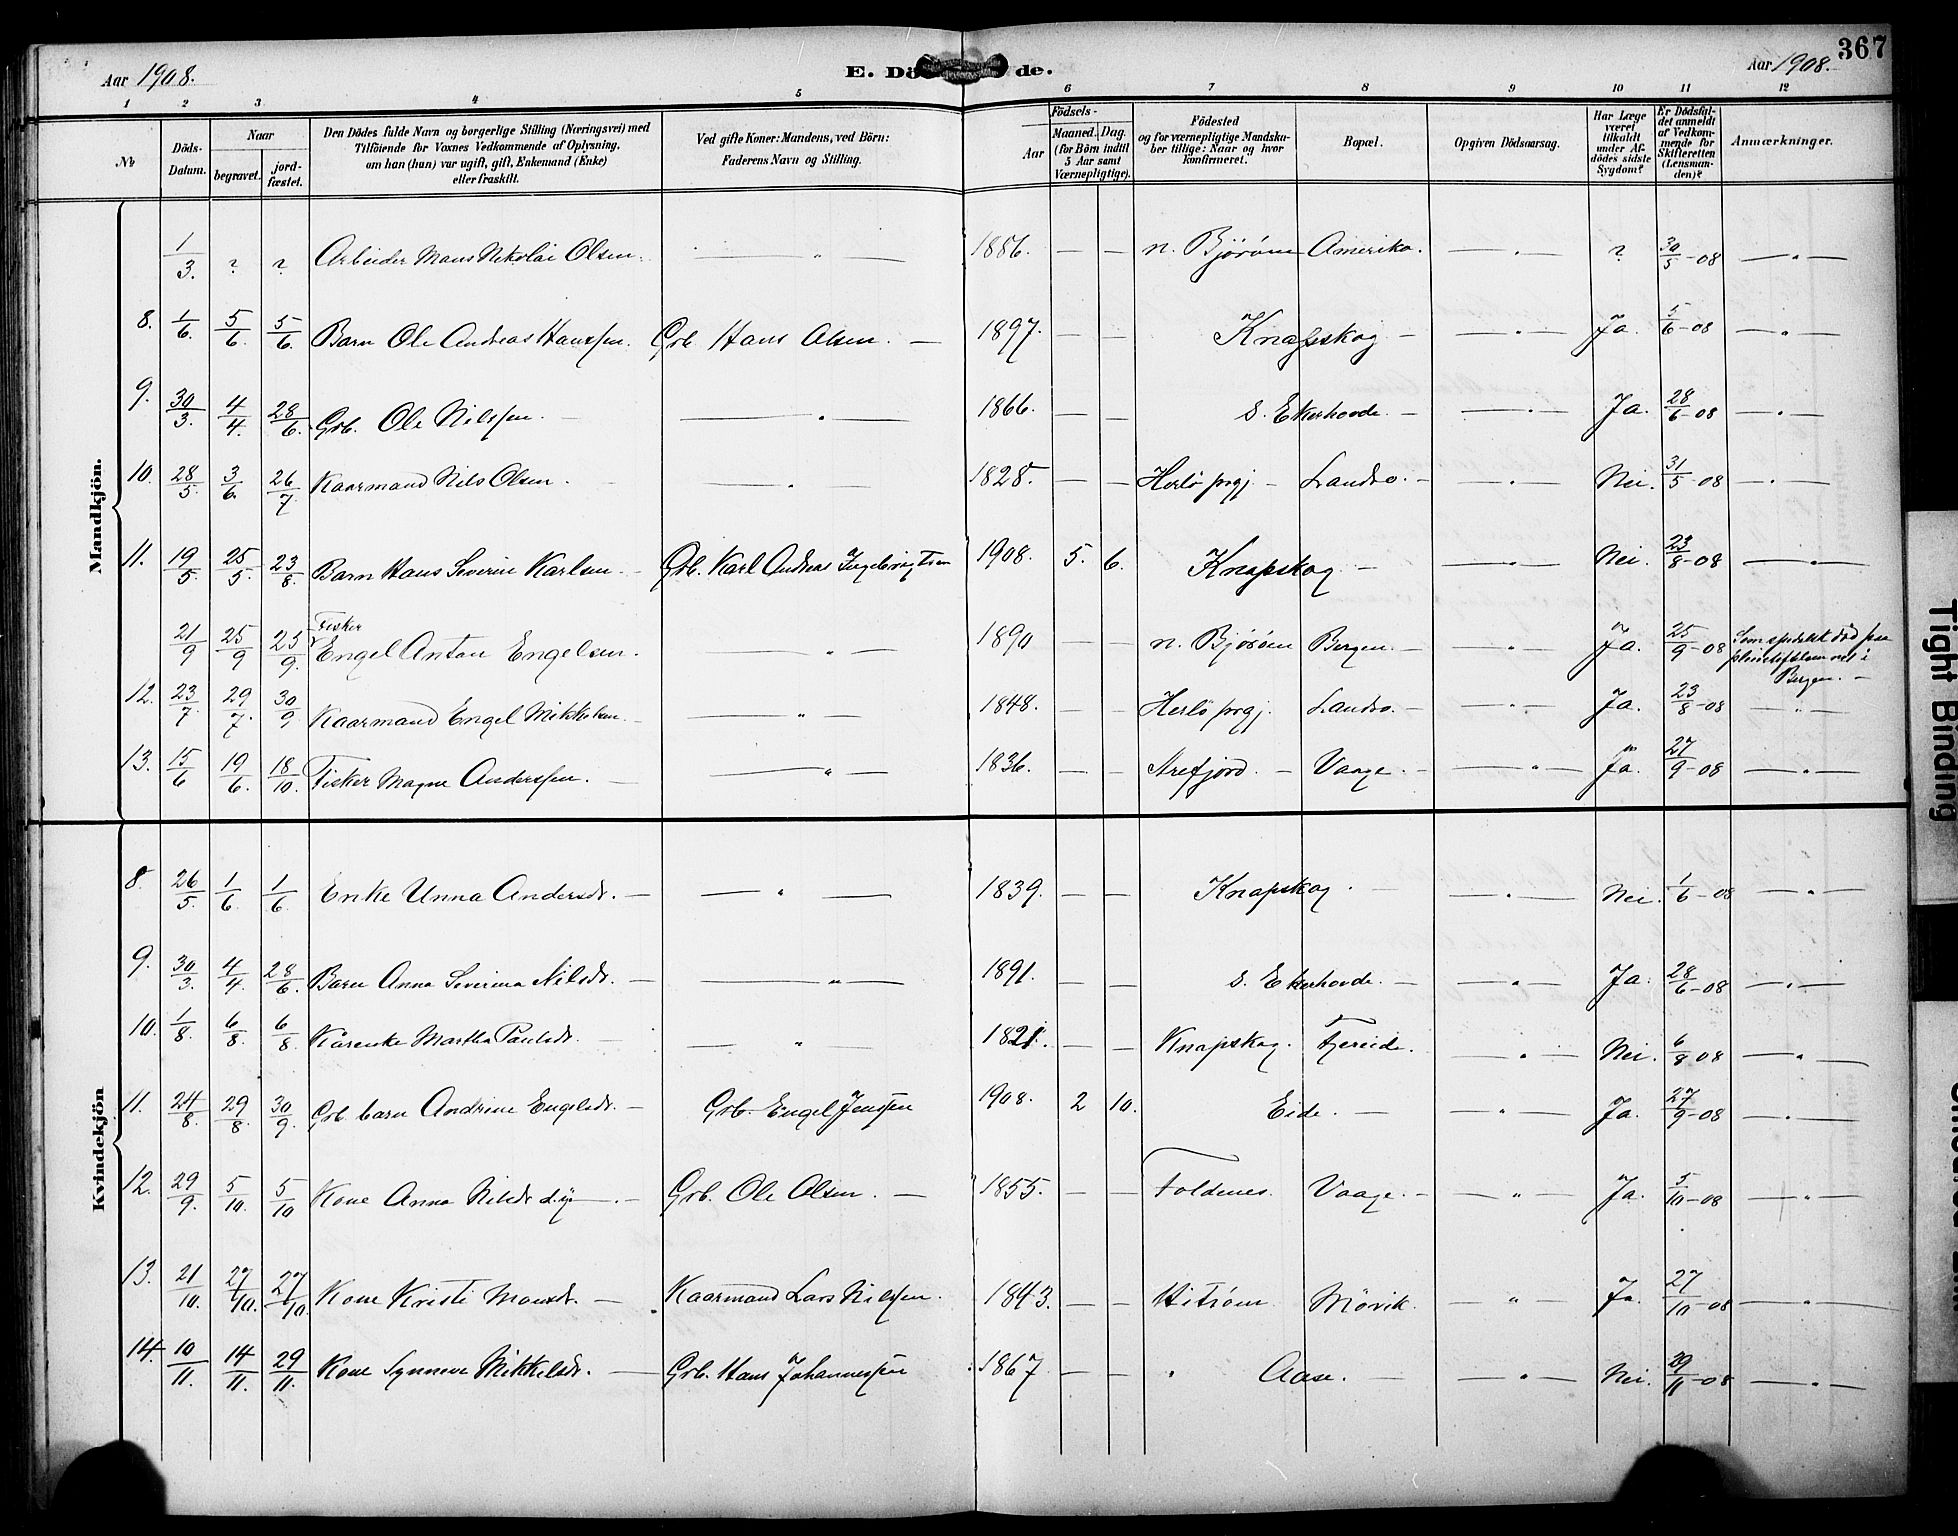 Aar 1908. E. Dö de. Aar 1908. 367
1 2 3 4 5 6 7 8 9 10 11 12
No
Döds-Datum.
Naar
begravet.
jord-fæstet.
Den Dödes fulde Navn og borgerlige Stilling (Næringsvei) med
Tilföiende for Voxnes Vedkommende af Oplysning,
om han (hun) var ugift, gift, Enkemand (Enke)
eller fraskilt.
Ved gifte Koner: Mandens, ved Börn:
Faderens Navn og Stilling.
Födsels-
Aar
Maaned. Dag.
(for Börn indtil
5 Aar samt
Værnepligtige).
Födested
og for værnepligtige Mandska-
ber tillige: Naar og hvor
konfirmeret.
Bopæl.
Opgiven Dödsaarsag.
Har Læge
været
tilkaldt
under Af-
dödes sidste
Sygdom?
Er Dödsfal-
det anmeldt
af Vedkom-
mende for
Skifteretten
(Lensman-
den)?
Anmærkninger.
Mandkjön.
1/3. ? ? Arbeider Mons Nikolai Olsen. — " — 1886. — — n. Björöen Amerika. — " — ? 30/5-08 — " —
8. 1/6. 5/6. 5/6. Barn Ole Andreas Hanssen. Grb. Hans Olsen. — 1897. — — Knapskog — — " — Ja. 5/6-08 — " —
9. 30/3. 4/4. 28/6. Grb. Ole Nilssen. — — " — 1866. — — s. Ekerhovde. — — " — Ja. 28/6-08 — " —
10. 28/5. 3/6. 26/7. Kaarmand Nils Olsen. — — " — 1828. — — Herlö prgj. — Landro. — — " — Nei. 31/5-08 — " —
11. 19/5. 25/5. 23/8. Barn Hans Severin Karlsen. — Grb. Karl Andreas Ingebrigtsen 1908. 5. 6. Knapskog — — " — Nei. 23/8-08 — " —
Fisker
21/9 25/9 25/9. Engel Anton Engelsen. — " — 1890 — — n. Björöen Bergen. — — " — Ja. 25/9-08 Som spedalsk död paa
pleiestiftelsen nr 1 i
Bergen. —
12. 23/7. 29/7. 30/9 Kaarmand Engel Mikkelsen. — " — 1848. — — Herlö prgj. Landro. — " — Ja. 23/8-08 — " —
13. 15/6 19/6. 18/10. Fisker Magne Anderssen. — — " — 1836. — — Strefjord. — Vaage. — — " — Ja. 27/9-08 — " —
Kvindekjön
8. 26/5. 1/6. 1/6. Enke Unna Andersdr. — — " — 1839. — — Knapskog. — — " — Nei. 1/6-08 — " —
9. 30/3. 4/4. 28/6. Barn Anna Severina Nilsdr. — — " — 1891. — — s. Ekerhovde. — — " — Ja. 28/6-08 — " —
10. 1/8. 6/8. 6/8 Kårenke Martha Paulsdr. — — " — 1821. — — Knapskog. Fjereide. — " — Nei. 6/8 08 — " —
11. 24/8. 29/8. 30/9. Grb. barn Andrine Engelsdr. — Grb. Engel Jenssen 1908. 2 10. Eide. — — " — Ja. 27/9-08 — " —
12. 29/9. 5/10. 5/10 Kone Anna Nilsdr. d.y. — Grb. Ole Olsen. — 1855. — — Foldenes. Vaage. — — " — Ja. 5/10-08 — " —
13. 21/10. 27/10. 27/10. Kone Kristi Monsdr. — Kaarmand Lars Nilssen. 1843. — — Hitröen Mövik. — " — Ja. 27/10-08 — " —
14. 10/11. 14/11. 29/11. Kone Synneve Mikkelsdr. — Grb. Hans Johannessen 1867 — — " Aase. — — " — Nei. 29/11-08 — " —
Tight Binding